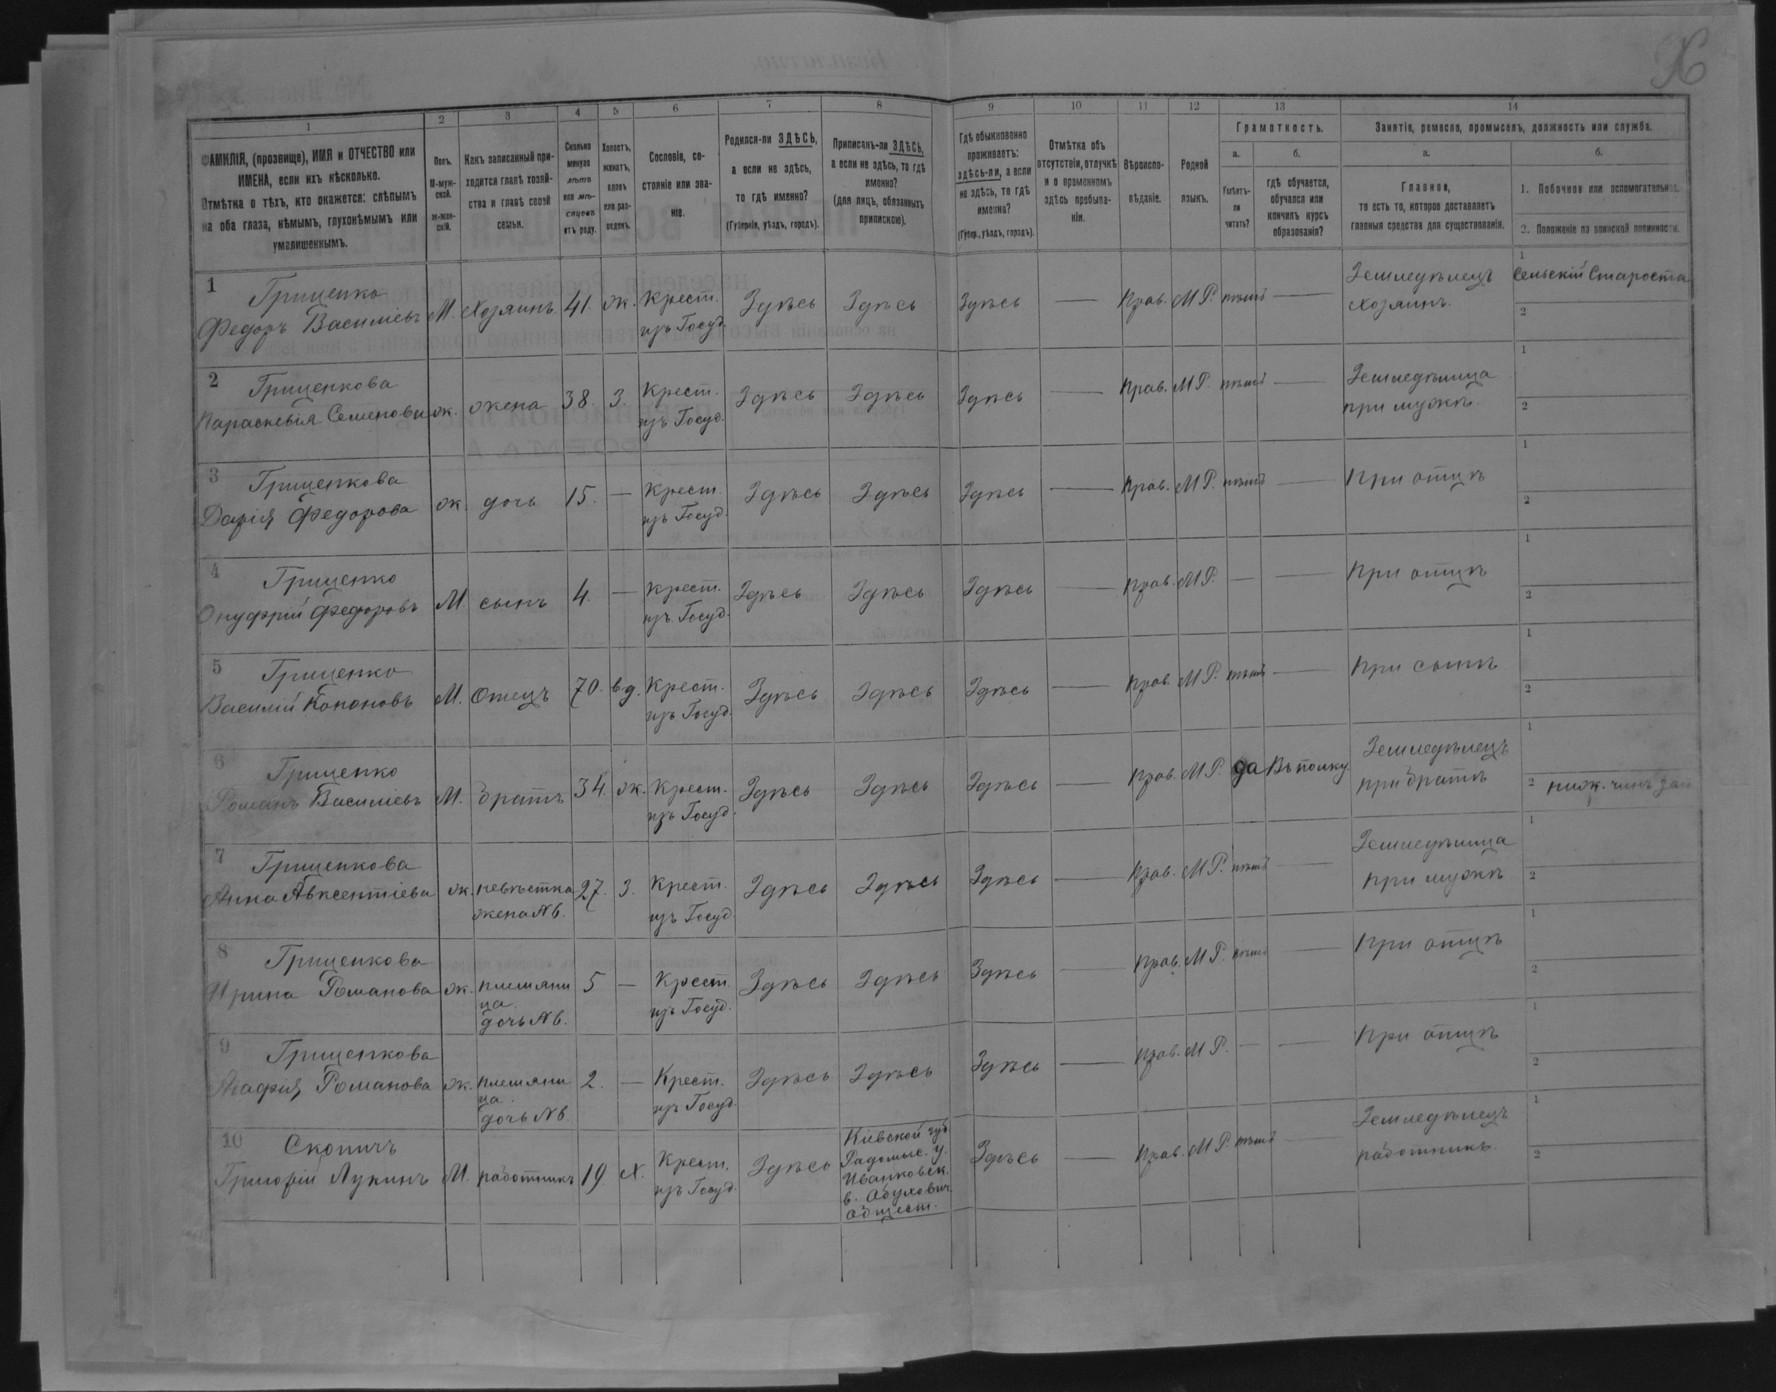 1 2 3 4 5 6 7 8 9 10 11 12 13 14
ФАМИЛІЯ, (прозвище), ИМЯ и ОТЧЕСТВО или
ИМЕНА, если ихъ нѣсколько.
Отмѣтка о тѣхъ, кто окажется: слѣпымъ
на оба глаза, нѣмымъ, глухонѣмымъ или
умалишеннымъ.
Полъ.
М-муж-
ской.
ж-жен-
скій.
Какъ записанный при-
ходится главѣ хозяй-
ства и главѣ своей
семьи.
Сколько
минуло
лѣтъ
или мѣ-
сяцевъ
отъ роду.
Холостъ,
женатъ,
вдовъ
или раз-
веденъ.
Сословіе, со-
стояніе или зва-
ніе.
Родился-ли ЗДѢСЬ,
а если не здѣсь,
то гдѣ именно?
(Губернія, уѣздъ, городъ).
Приписанъ-ли ЗДѢСЬ,
а если не здѣсь, то гдѣ
именно?
(для лицъ, обязанныхъ
припискою).
Гдѣ обыкновенно
проживаетъ:
здѣсь-ли, а если
не здѣсь, то гдѣ
именно?
(Губер., уѣздъ, городъ).
Отмѣтка объ
отсутствіи, отлучкѣ
и о временномъ
здѣсь пребыва-
ніи.
Вѣроиспо-
вѣданіе.
Родной
языкъ.
Грамотность.
а.
Умѣетъ-
ли
читать?
б.
гдѣ обучается,
обучался или
кончилъ курсъ
образованія?
Занятіе, ремесло, промыселъ, должность или служба.
а.
Главное,
то есть то, которое доставляетъ
главныя средства для существованія.
б.
1. Побочное или вспомогательное.
2. Положеніе по воинской повинности.
1 Гриценко
Федоръ Василіевъ М. Хозяинъ 41. ж. Крест. изъ Госуд. Здѣсь Здѣсь Здѣсь — Прав. М Р. нѣтъ — Земледѣлецъ
Хозяинъ.
1 Сельскій Староста
2
2 Гриценкова
Параскевія Семенова ж. жена 38. З. Крест. изъ Госуд. Здѣсь Здѣсь Здѣсь — Прав. М Р. нѣтъ — Земледѣлица
при мужѣ.
1
2
3 Гриценкова
Дарія Федорова ж. дочь 15. — Крест. изъ Госуд. Здѣсь Здѣсь Здѣсь — Прав. М Р. нѣтъ — При отцѣ
1
2
4 Гриценко
Онуфрій Федоровъ М. сынъ 4. — Крест. изъ Госуд. Здѣсь Здѣсь Здѣсь — Прав. М Р. — — При отцѣ
1
2
5 Гриценко
Василій Кононовъ М. Отецъ 70. вд. Крест. изъ Госуд. Здѣсь Здѣсь Здѣсь — Прав. М Р. нѣтъ — При сынѣ
1
2
6 Гриценко
Романъ Василіевъ М. братъ 34. ж. Крест. изъ Госуд. Здѣсь Здѣсь Здѣсь — Прав. М Р. да Въ полку Земледѣлецъ
при братѣ
1
2 ниж. чинъ зап
7 Гриценкова
Анна Авксентіева ж. невѣстка
жена №6. 27. З. Крест. изъ Госуд. Здѣсь Здѣсь Здѣсь — Прав. М Р. нѣтъ — Земледѣлица
при мужѣ
1
2
8 Гриценкова
Ирина Романова ж. племянни
ца
дочь №6. 5 — Крест. изъ Госуд. Здѣсь Здѣсь Здѣсь — Прав. М Р. нѣтъ — При отцѣ
1
2
9 Гриценкова
Агафія Романова ж. племянни
ца.
дочь №6 2. — Крест. изъ Госуд. Здѣсь Здѣсь Здѣсь — Прав. М Р. — — При отцѣ
1
2
10 Скопичъ
Григорій Лукинъ М. работникъ 19. Х. Крест. изъ Госуд. Здѣсь Кіевской губ
Радомыс. у.
Иванковск.
в. Обухович.
Общест. Здѣсь — Прав. М Р. нѣтъ — Земледѣлецъ
работникъ.
1
2